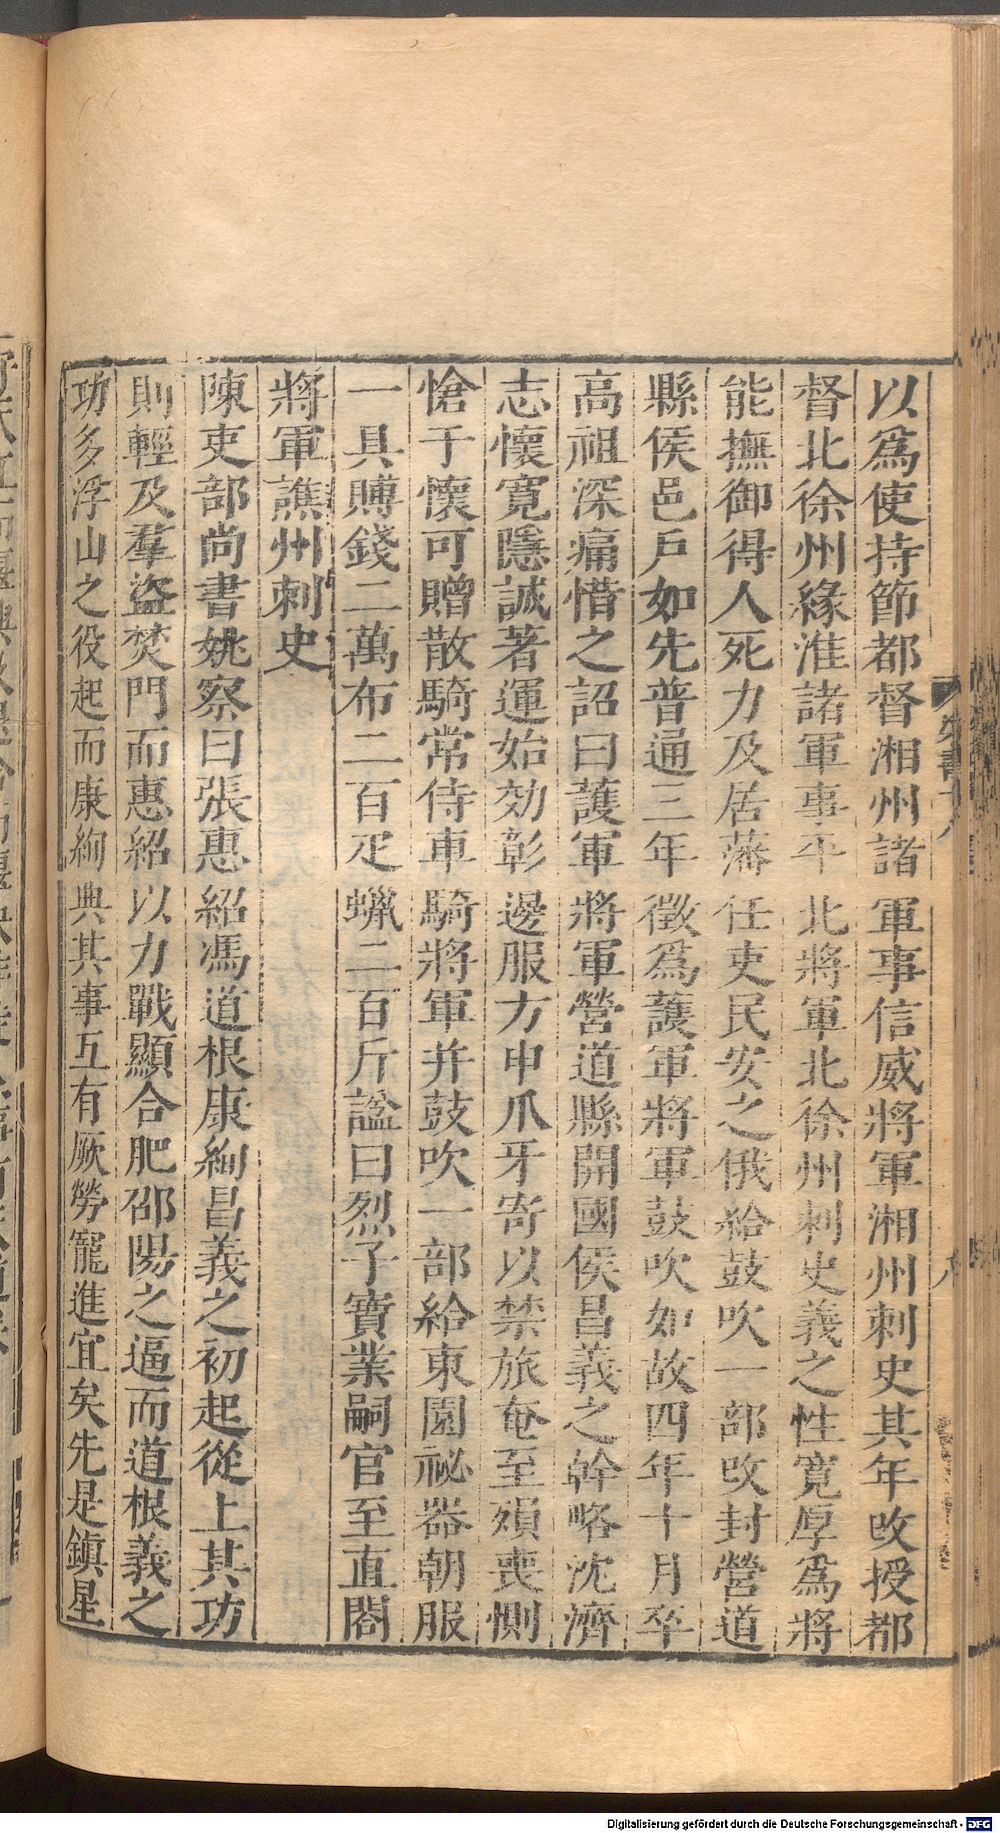 以爲使持節都督湘州諸軍事信威將軍湘州刺史其年改授都
督北徐州緣淮諸軍事平北將軍北徐州刺史義之性寬厚爲將
能撫御得人死力及居藩任吏民安之俄給鼓吹一部改封營道
縣侯邑戶如先普通三年徵爲護軍將軍鼓吹如故四年十月卒
高祖深痛惜之詔曰護軍將軍營道縣開國侯昌義之幹略沈濟
志懷寬隱誠著運始効彰邊服方申爪牙寄以禁旅奄至殞喪惻
愴于懷可贈散騎常侍車騎將軍并鼓吹一部給東園祕器朝服
一具賻錢二萬布二百疋蠟二百斤諡曰烈子寶業嗣官至直閤
將軍譙州刺史
陳吏部尚書姚察曰張惠紹馮道根康絢昌義之初起從上其功
則輕及羣盜焚門而惠紹以力戰顯合肥邵陽之逼而道根義之
功多浮山之役起而康絢典其事互有厥勞寵進宜矣先是鎮星
Digitalisierung gefördert durch die Deutsche Forschungsgemeinschaft - DFG